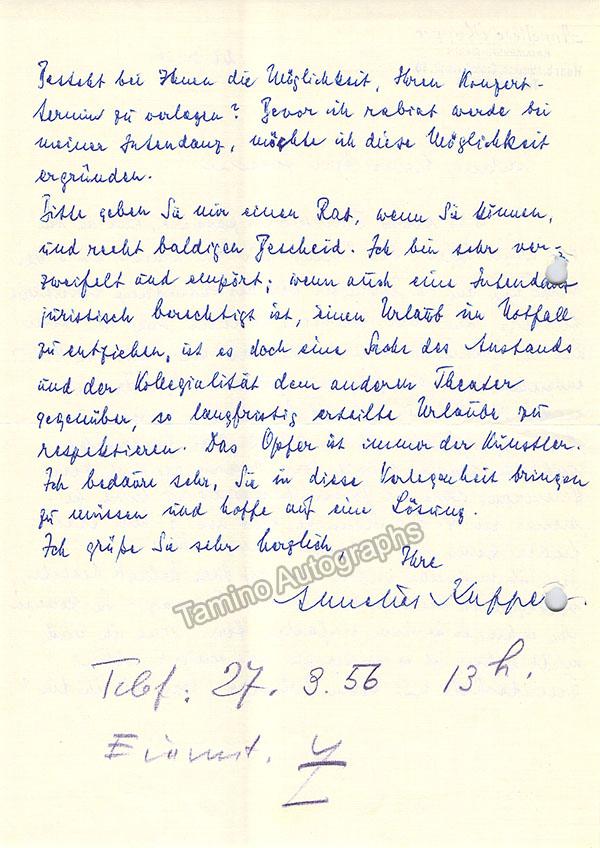 Besteht bei Ihnen die Möglichkeit, Ihren Konzert-
termin zu verlegen? Bevor ich rabiat werde bei
meiner Intendanz, möchte ich diese Möglichkeit
ergründen.
Bitte geben Sie mir einen Rat, wenn Sie können,
und recht baldigen Bescheid. Ich bin sehr ver-
zweifelt und empört; wenn auch eine Intendanz
juristisch berechtigt ist, einen Urlaub im Notfall
zu entziehen, ist es doch eine Sache des Anstands
und der Kollegialität dem anderen Theater
gegenüber, so langfristig erteilte Urlaube zu
respektieren. Das Opfer ist immer der Künstler.
Ich bedaure sehr, Sie in diese Verlegenheit bringen
zu müssen und hoffe auf eine Lösung.
Ich grüße Sie sehr herzlich,
Ihre
Annelies Kupper.
Tamino Autographs
Telef. 27. 3. 56 13 h.